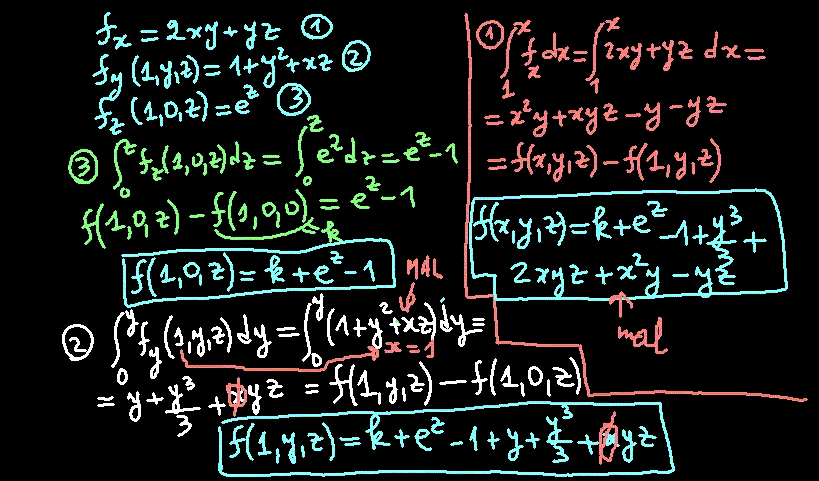 fx = 2xy + yz ①
fy (1,y,z) = 1 + y² + xz ②
fz (1,0,z) = e^z ③
③ ∫₀^z fz(1,0,z) dz = ∫₀^z e^z dz = e^z - 1
f(1,0,z) - f(1,0,0) = e^z - 1
= k
f(1,0,z) = k + e^z - 1
MAL
② ∫₀^y fy(1,y,z) dy = ∫₀^y (1 + y² + xz) dy =
x = 1
= y + y³/3 + xyz = f(1,y,z) - f(1,0,z)
f(1,y,z) = k + e^z - 1 + y + y³/3 + xyz
① ∫₁^x fx dx = ∫₁^x 2xy + yz dx =
= x²y + xyz - y - yz
= f(x,y,z) - f(1,y,z)
f(x,y,z) = k + e^z - 1 + y³/3 +
2xyz + x²y - yz
mal